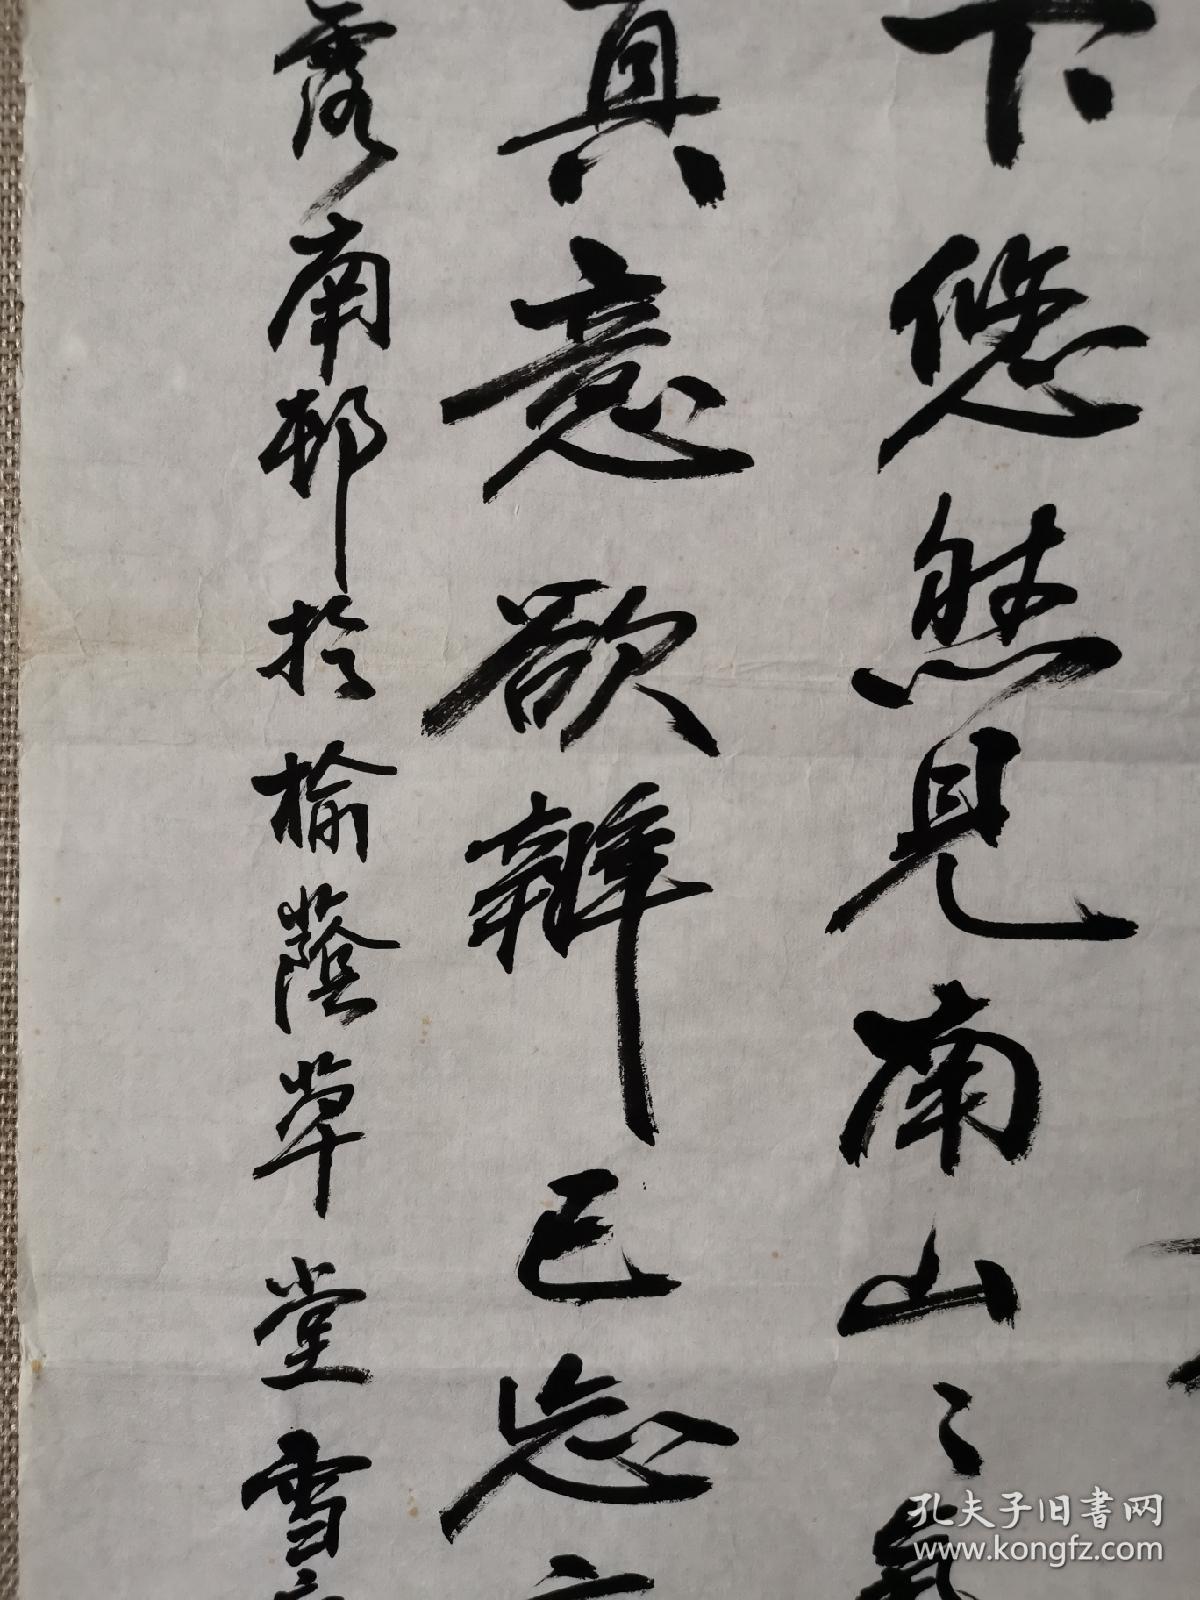 下悠然見南山〻氣
真意欲辯已忘言
露南邨於榆蔭草堂雪
孔夫子旧书网
www.kongfz.com